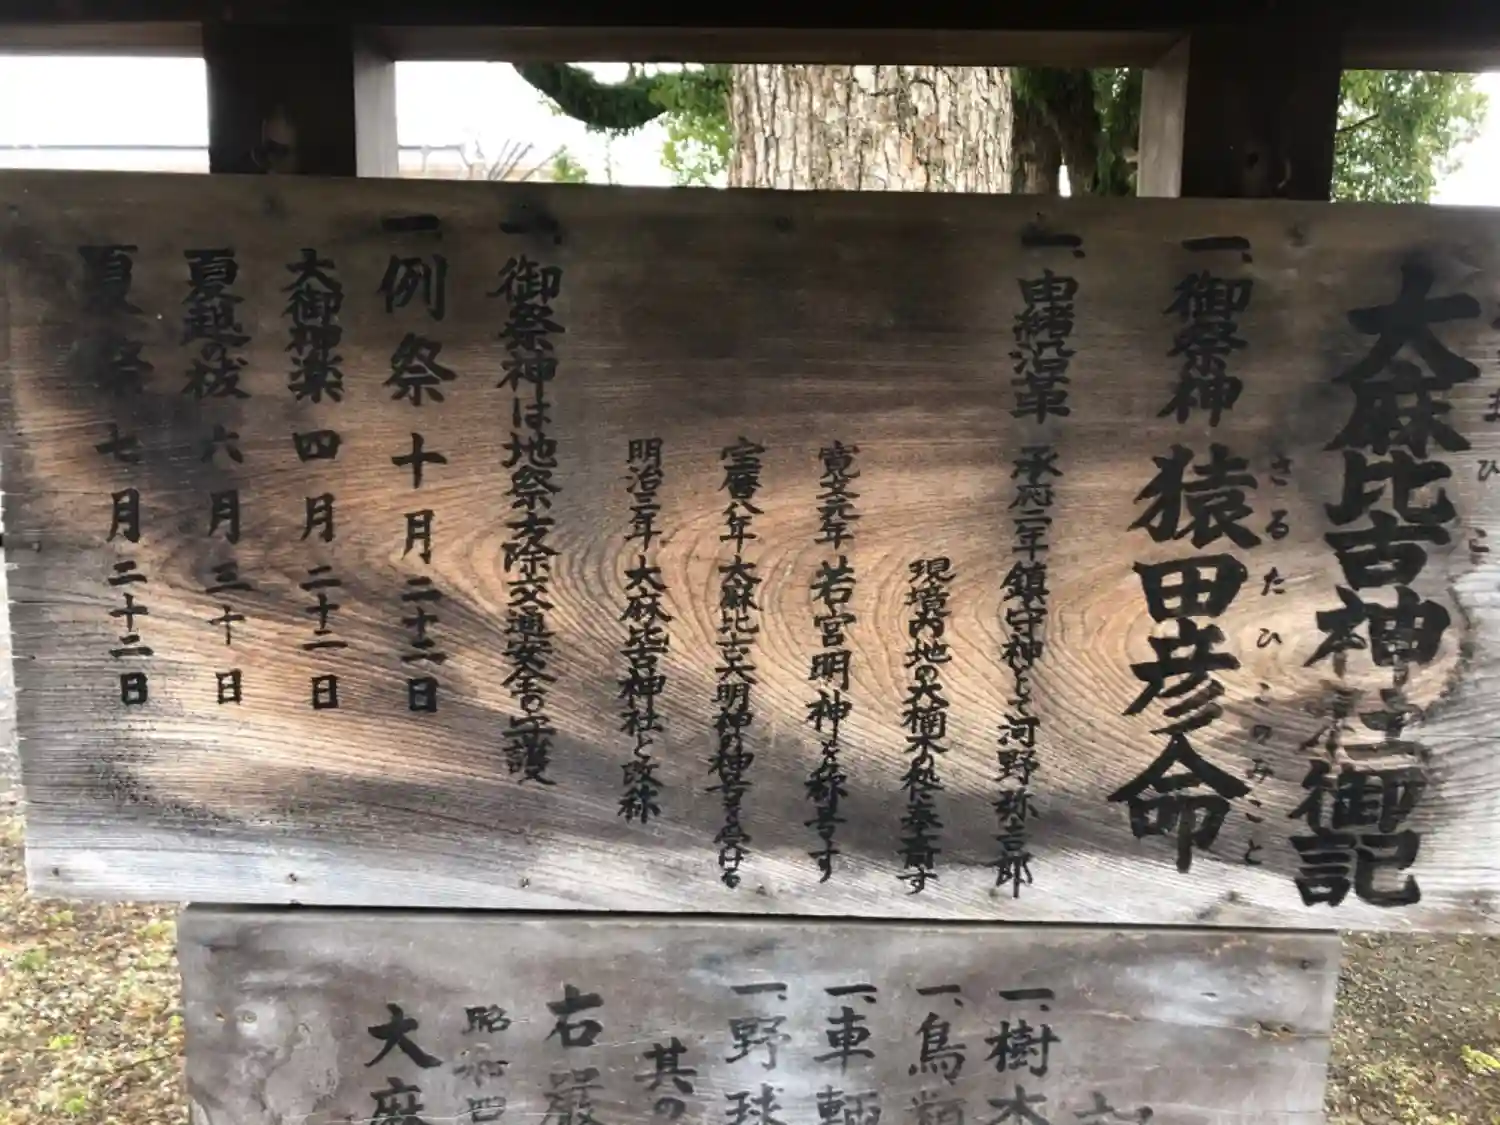 大麻比古神社御記
一、御祭神 猿田彦命
さるたひこのみこと
一、由緒沿革 承府二年鎮守神として河野弥吉郎
現境内地の大楠木の処に奉斎す
寛文元年 若宮明神と称号す
宝暦八年 大麻比古大明神の神号を受ける
明治三年 大麻比古神社と改称
一、御祭神は地祭方除交通安全の守護
一 例祭 十月二十二日
大御神楽 四月二十二日
夏越の祓 六月三十日
夏祭 七月二十二日
一、樹木
一、鳥類
一、車輌
一、野球
其の
右厳
昭和四
大麻